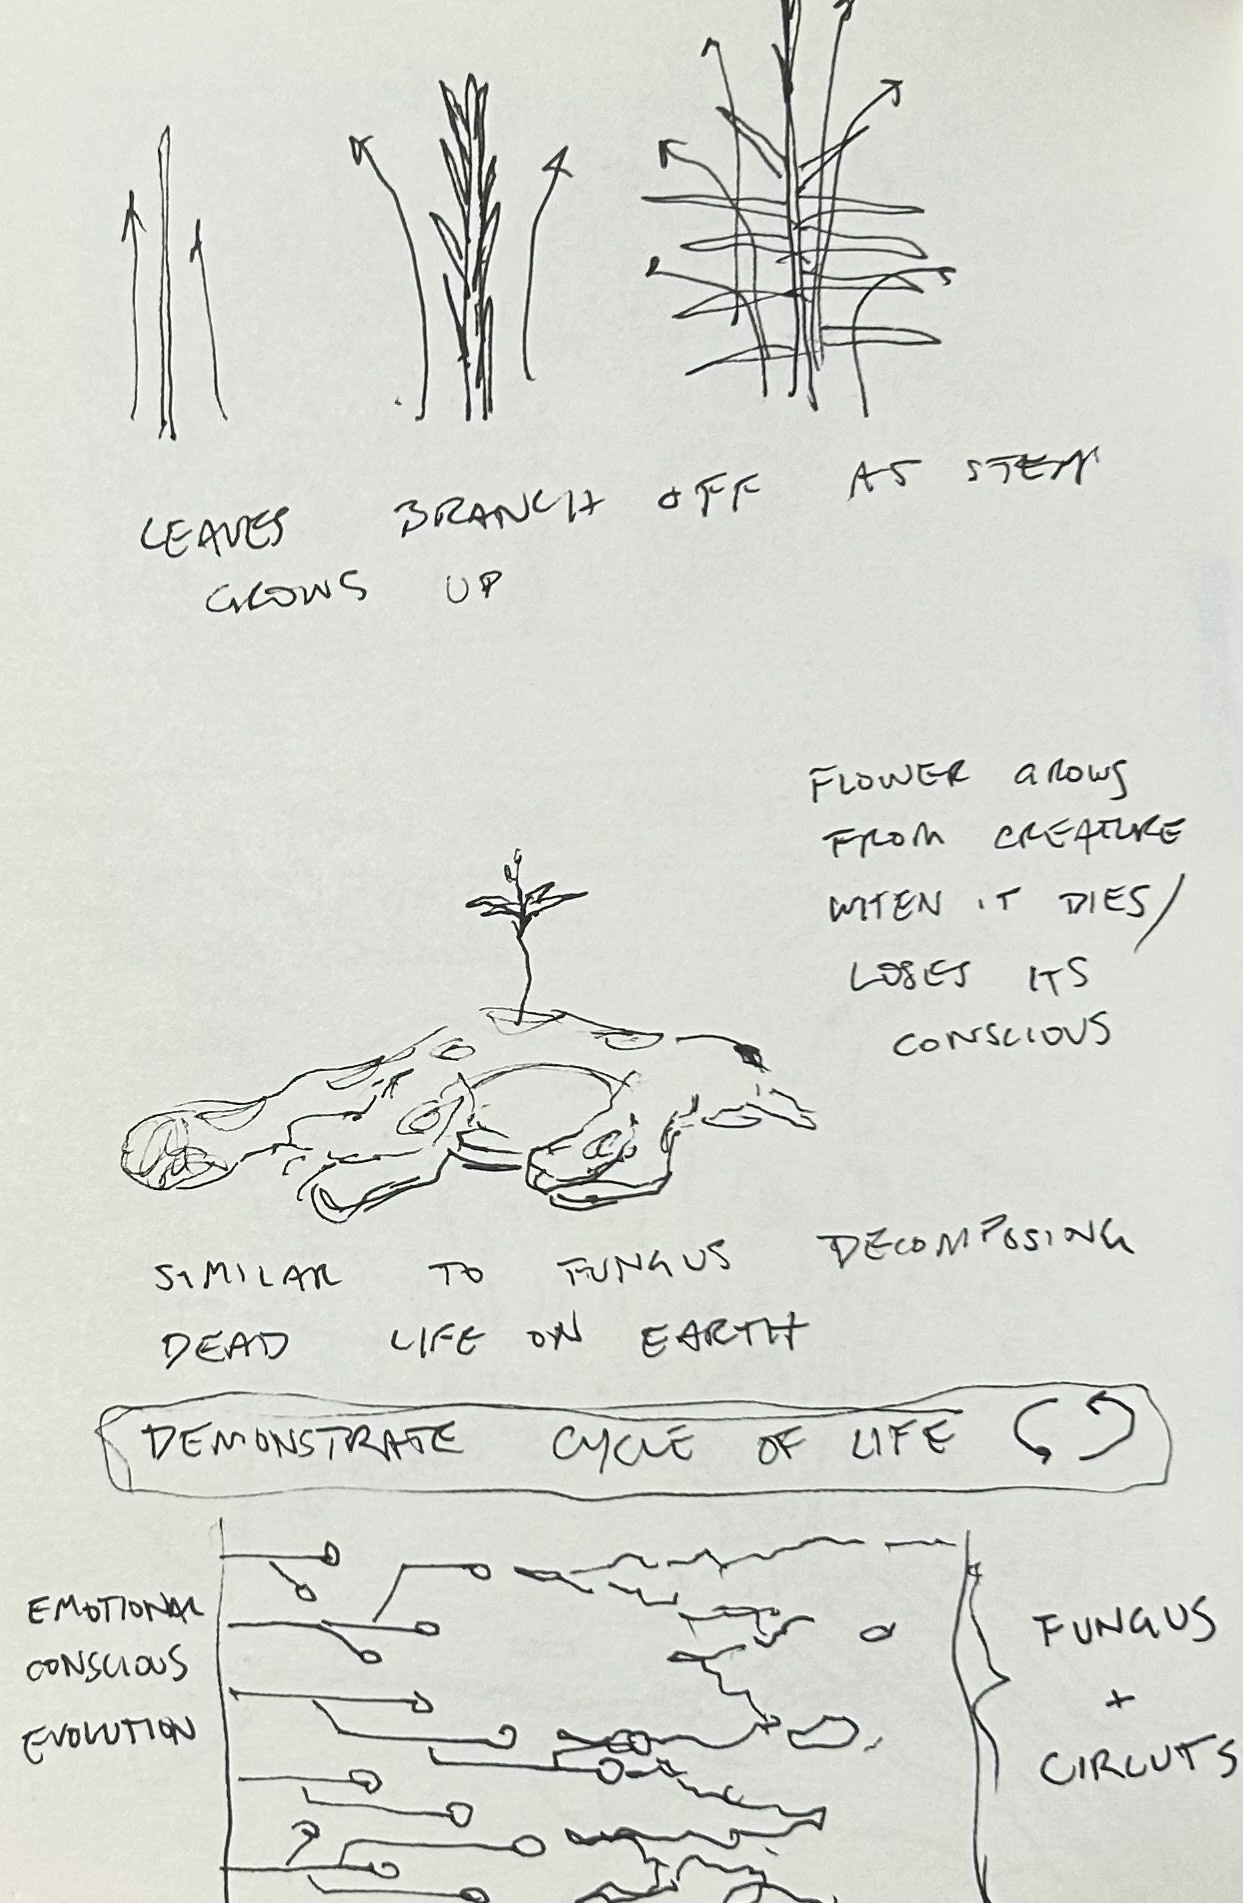 LEAVES BRANCH OFF AS STEM
GROWS UP
FLOWER GROWS
FROM CREATURE
WHEN IT DIES/
LOSES ITS
CONSCIOUS
SIMILAR TO FUNGUS DECOMPOSING
DEAD LIFE ON EARTH
DEMONSTRATE CYCLE OF LIFE
EMOTIONAL
CONSCIOUS
EVOLUTION
FUNGUS
+
CIRCUTS